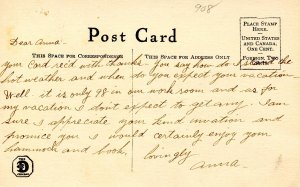 908
Post Card
PLACE STAMP
HERE.
UNITED STATES
AND CANADA,
ONE CENT.
FOREIGN, TWO
CENTS.
THIS SPACE FOR CORRESPONDENCE
THIS SPACE FOR ADDRESS ONLY
Dear Anna:-
your Card recd with thanks. for day how do you stand the
hot weather and when do you expect your vacation
Well it is only 98 in our work room and as for
my vacation I don't expect to get any. I am
sure I appreciate your kind invation and
promice you I would certainly enjoy your
hammock and book.
lovingly
Anna